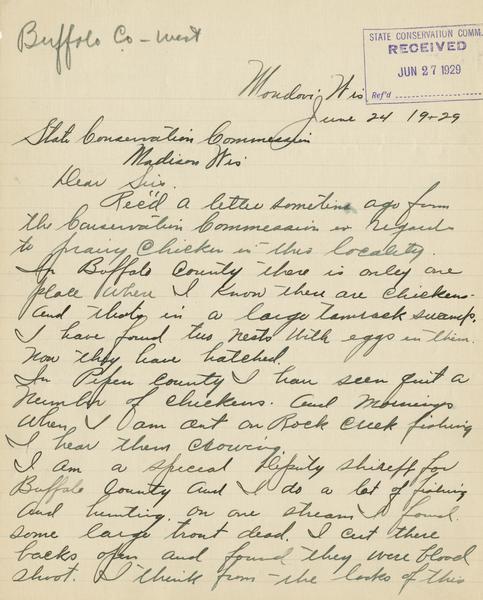 Buffalo Co - West
STATE CONSERVATION COMM.
RECEIVED
JUN 27 1929
Ref'd
Mondovi, Wis
June 24 19-29
State Conservation Commission
Madison Wis
Dear Sirs.
Rec'd a letter sometime ago from
the Conservation Commission in Regards
to prairy Chicken in this locality.
In Buffalo County there is only are
place Where I Know there are chickens.
And thats in a large tamrack swamp.
I have found two nests With eggs in them.
Now they have hatched.
In Pepen County I have seen quit a
Number of chickens. And Mornings
When I am out on Rock Creek fishing
I hear them crowing.
I am a special Deputy shireff for
Buffalo County And I do a lot of fishing
And hunting. on one stream I found
some large trout dead. I cut there
backs open and found they were blood
shoot. I think from the looks of this